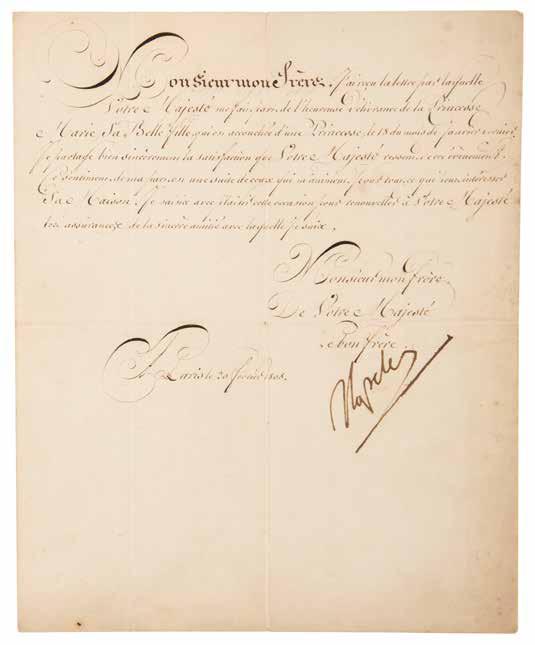 Monsieur mon frère. J'ai reçu la lettre par laquelle
Votre Majesté me fait part de l'heureuse Délivrance de la Princesse
Marie Sa Belle fille qui est accouchée d'une Princesse le 18 du mois de janvier dernier.
Je partage bien sincèrement la satisfaction que Votre Majesté ressent de cet évènement.
Le sentiment de ma part est une suite de ceux qui m'animent pour tout ce qui peut intéresser
Sa Maison. Je saisis avec plaisir cette occasion pour renouveller à Votre Majesté
les assurances de la sincère amitié avec laquelle je suis,
Monsieur mon frère.
De Votre Majesté
Le bon frère.
A Paris le 20 février 1808.